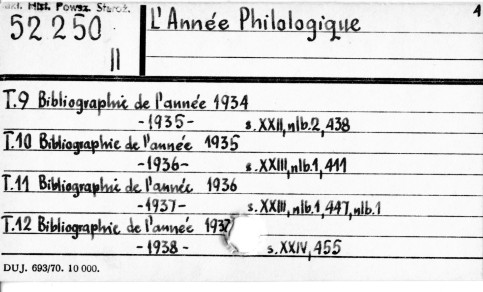 Zakł. Hist. Powsz. Staroż.
52 250
II
L'Année Philologique
1
T.9 Bibliographie de l'année 1934
-1935- s.XXII,nlb.2,438
T.10 Bibliographie de l'année 1935
-1936- s.XXIII,nlb.1,411
T.11 Bibliographie de l'année 1936
-1937- s.XXIII,nlb.1,447,nlb.1
T.12 Bibliographie de l'année 1937
-1938- s.XXIV,455
DUJ. 693/70. 10 000.